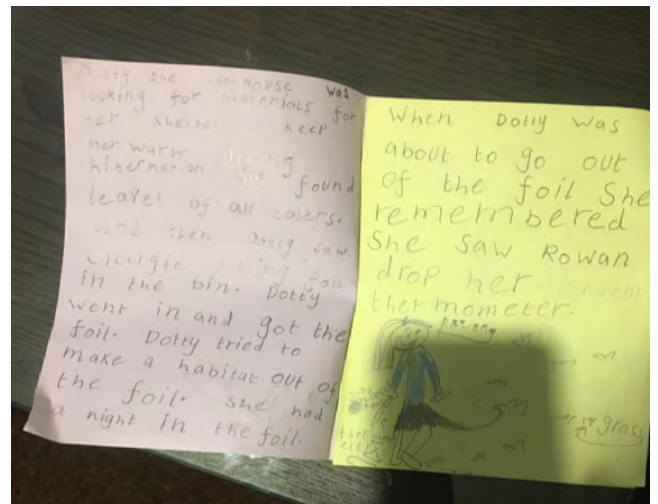 Dotty the Mouse was
looking for materials for
her shelter keep
her warm
hibernation found
leaves of all colers.
and then Dotty saw
foil
in the bin. Dotty
went in and got the
foil. Dotty tried to
make a habitat out of
the foil. she had
a night in the foil.
When Dotty was
about to go out
of the foil She
remembered
She saw Rowan
drop her
thermometer.
grass